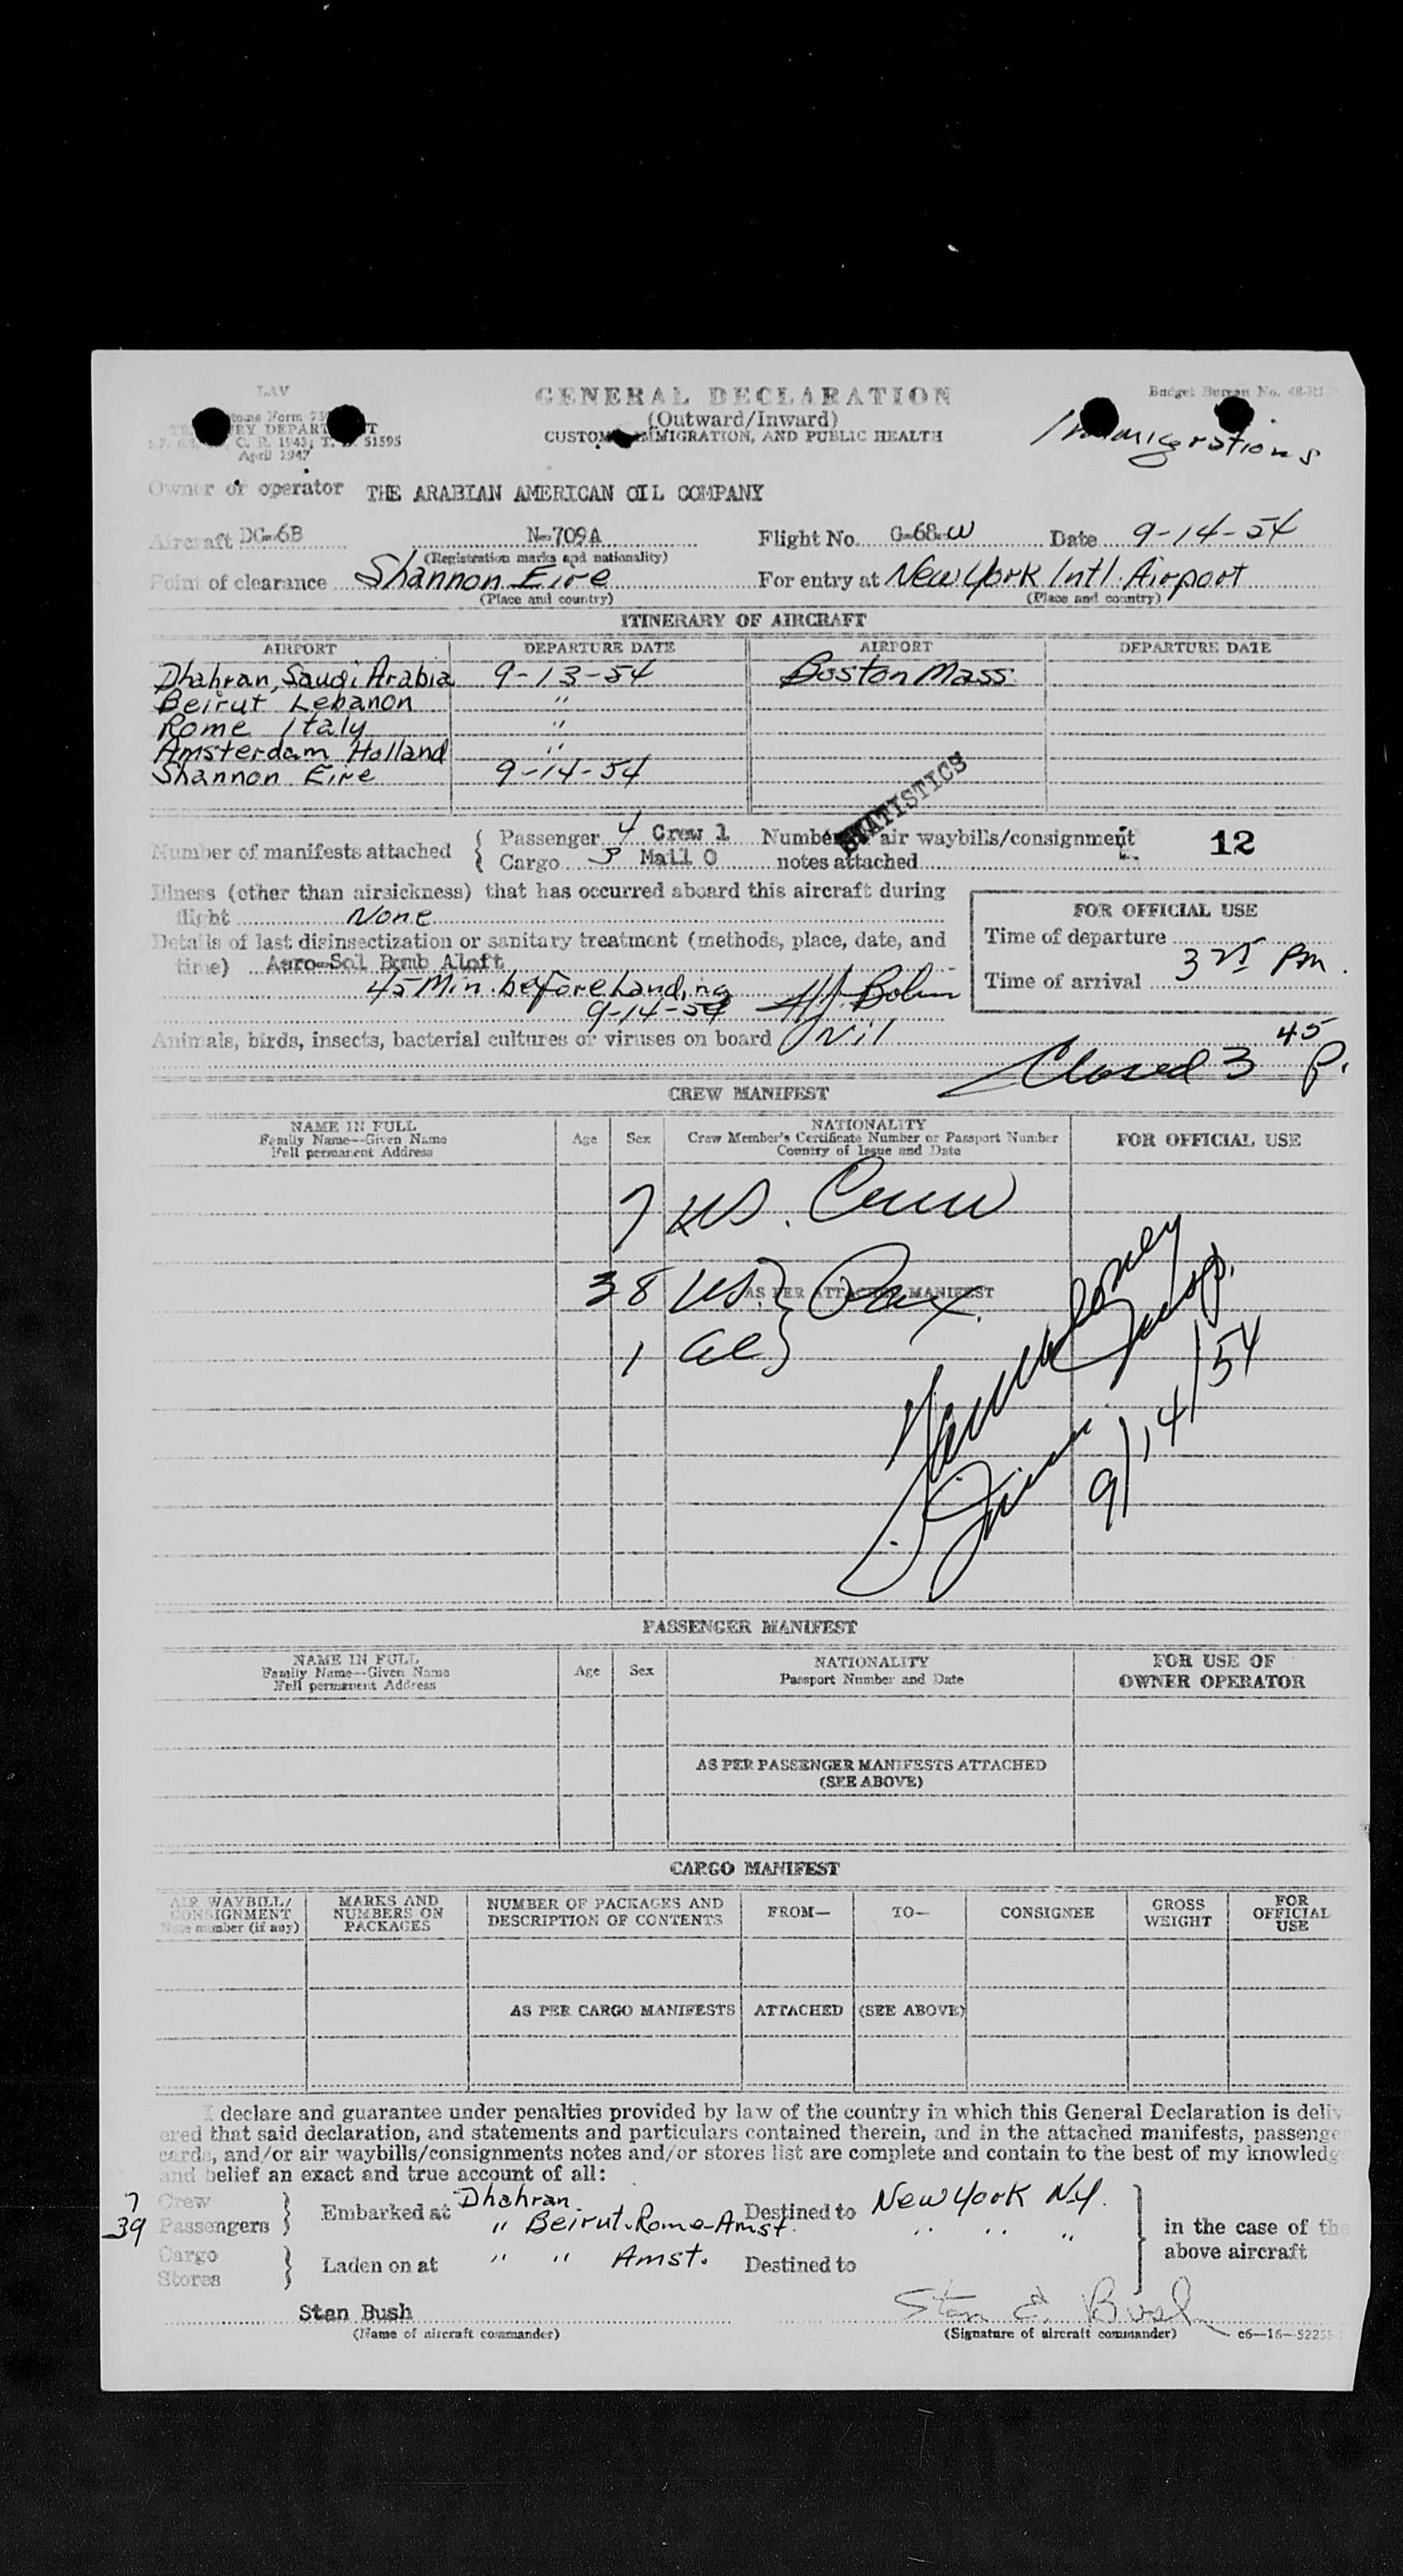 LAV
GENERAL DECLARATION
Budget Bureau No.
(Outward/Inward)
CUSTOMS, IMMIGRATION, AND PUBLIC HEALTH
Immigrations
C. R. 1943; T. 51595
April 1947
Owner or operator THE ARABIAN AMERICAN OIL COMPANY
Aircraft DC-6B N-709A Flight No. G-68-W Date 9-14-54
(Registration marks and nationality)
Point of clearance Shannon Eire For entry at New York Int'l. Airport
(Place and country) (Place and country)
ITINERARY OF AIRCRAFT
AIRPORT DEPARTURE DATE AIRPORT DEPARTURE DATE
Dhahran, Saudi Arabia 9-13-54 Boston Mass.
Beirut Lebanon "
Rome Italy "
Amsterdam Holland "
Shannon Eire 9-14-54
STATISTICS
Number of manifests attached { Passenger 4 Crew 1 Number of air waybills/consignment 12
Cargo 3 Mail 0 notes attached
Illness (other than airsickness) that has occurred aboard this aircraft during
flight None
FOR OFFICIAL USE
Details of last disinsectization or sanitary treatment (methods, place, date, and
time) Aero-Sol Bomb Aloft
Time of departure
45 Min. before Landing
9-14-54
Time of arrival 3 25 Pm.
Animals, birds, insects, bacterial cultures or viruses on board Nil
Closed 3 45 P.
CREW MANIFEST
NAME IN FULL Age Sex NATIONALITY FOR OFFICIAL USE
Family Name--Given Name Crew Member's Certificate Number or Passport Number
Full permanent Address Country of Issue and Date
7 US. Crew
38 US. } Pax.
AS PER ATTACHED MANIFEST
1 Al }
9/14/54
PASSENGER MANIFEST
NAME IN FULL Age Sex NATIONALITY FOR USE OF
Family Name--Given Name Passport Number and Date OWNER OPERATOR
Full permanent Address
AS PER PASSENGER MANIFESTS ATTACHED
(SEE ABOVE)
CARGO MANIFEST
AIR WAYBILL/ MARKS AND NUMBER OF PACKAGES AND FROM— TO— CONSIGNEE GROSS FOR
CONSIGNMENT NUMBERS ON DESCRIPTION OF CONTENTS WEIGHT OFFICIAL
Note number (if any) PACKAGES USE
AS PER CARGO MANIFESTS ATTACHED (SEE ABOVE)
I declare and guarantee under penalties provided by law of the country in which this General Declaration is deliv-
ered that said declaration, and statements and particulars contained therein, and in the attached manifests, passenger
cards, and/or air waybills/consignments notes and/or stores list are complete and contain to the best of my knowledge
and belief an exact and true account of all:
7 Crew } Embarked at Dhahran. Destined to New York N.Y.
39 Passengers " Beirut-Rome-Amst. " " " in the case of the
Cargo } Laden on at " " Amst. Destined to above aircraft
Stores
Stan Bush Stan E. Bush
(Name of aircraft commander) (Signature of aircraft commander)